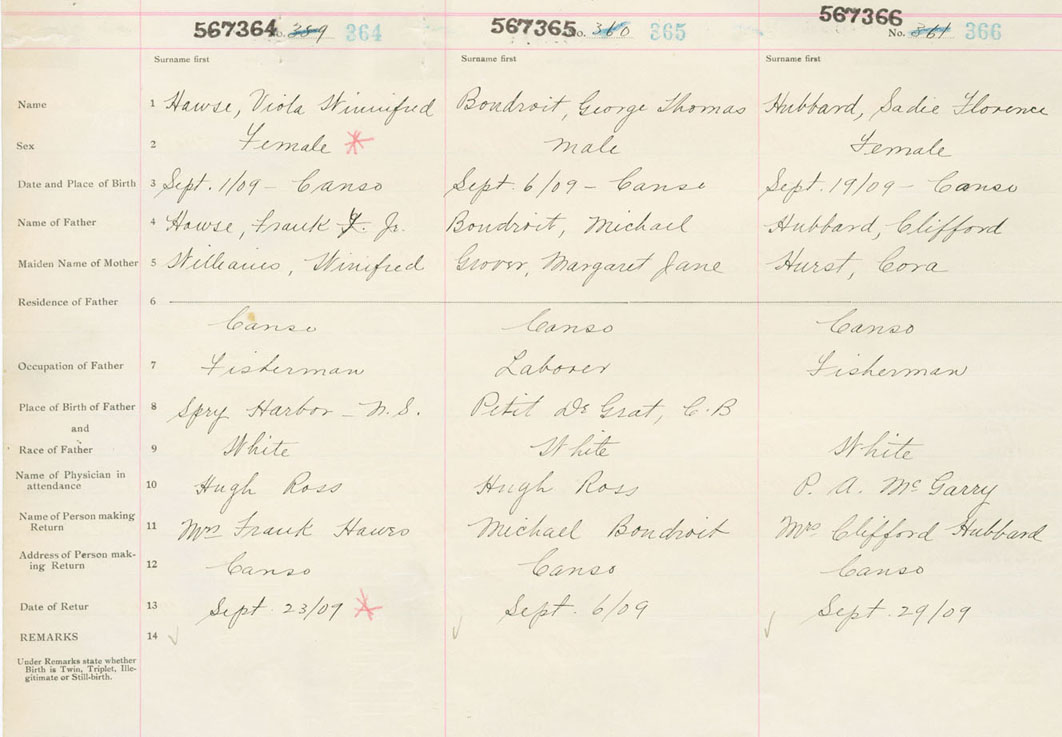 567364 No. 359 364 567365 No. 360 365 567366 No. 361 366
Surname first Surname first Surname first
Name 1 Hawse, Viola Winnifred Bondroit, George Thomas Hubbard, Sadie Florence
Sex 2 Female Male Female
Date and Place of Birth 3 Sept. 1/09 - Canso Sept. 6/09 - Canso Sept. 19/09 - Canso
Name of Father 4 Hawse, Frank F. Jr. Bondroit, Michael Hubbard, Clifford
Maiden Name of Mother 5 Williams, Winifred Grover, Margaret Jane Hurst, Cora
Residence of Father 6
Canso Canso Canso
Occupation of Father 7 Fisherman Laborer Fisherman
Place of Birth of Father 8 Spry Harbor - N.S. Petit De Grat, C.B
and
Race of Father 9 White White White
Name of Physician in
attendance 10 Hugh Ross Hugh Ross P. A. McGarry
Name of Person making
Return 11 Mrs Frank Hawes Michael Bondroit Mrs Clifford Hubbard
Address of Person mak-
ing Return 12 Canso Canso Canso
Date of Retur 13 Sept. 23/09 Sept. 6/09 Sept. 29/09
REMARKS 14
Under Remarks state whether
Birth is Twin, Triplet, Ille-
gitimate or Still-birth.